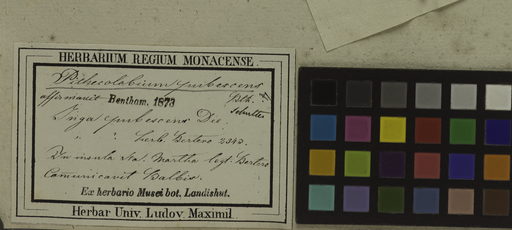 HERBARIUM REGIUM MONACENSE.
Pithecolobium pubescens
affirmavit Bentham. 1873 Bth.
Inga pubescens Dec.
" " herb. Bertero 2343.
In insula Sta. Martha legt. Bertero
Comunicavit Balbis.
Ex herbario Musei bot. Landishut.
Herbar Univ. Ludov. Maximil.